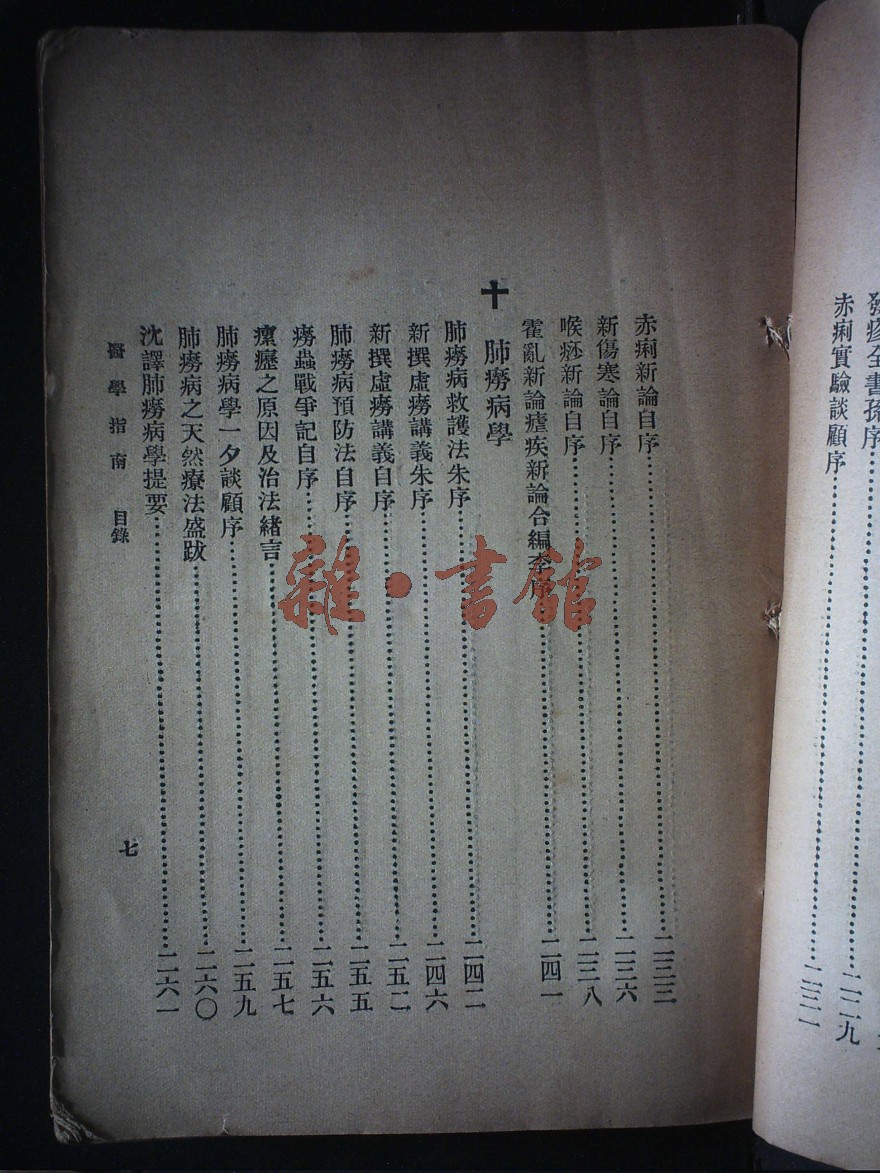 赤痢實驗談顧序……二三一
赤痢新論自序……二三三
新傷寒論自序……二三六
喉痧新論自序……二三八
霍亂新論瘧疾新論合編李序……二四一
十 肺癆病學
肺癆病救護法朱序……二四二
新撰虛癆講義朱序……二四六
新撰虛癆講義自序……二五二
肺癆病預防法自序……二五五
癆蟲戰爭記自序……二五六
瘰癧之原因及治法緒言……二五七
肺癆病學一夕談顧序……二五九
肺癆病之天然療法盛跋……二六〇
沈譯肺癆病學提要……二六一
醫學指南 目錄 七
雜·書館